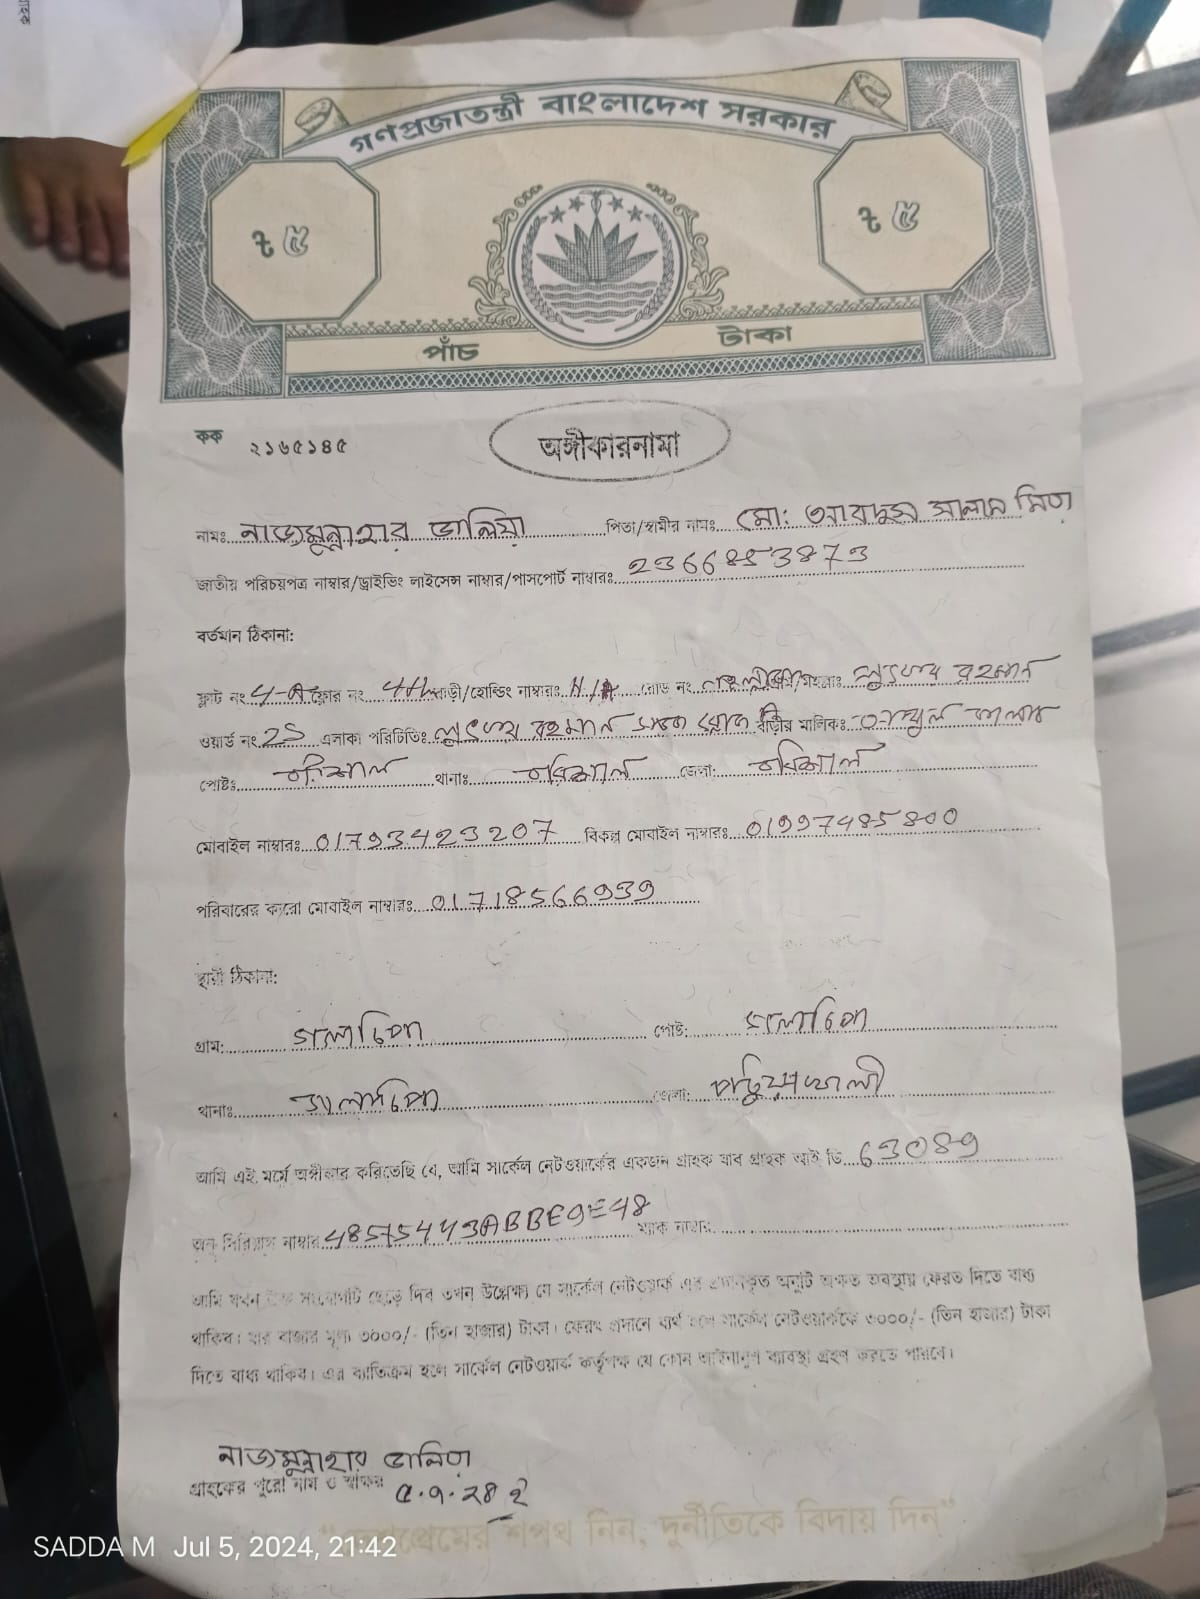 গণপ্রজাতন্ত্রী বাংলাদেশ সরকার
৳ ৫ ৳ ৫
পাঁচ টাকা
কক ২১৬৫১৪৫
অঙ্গীকারনামা
নামঃ নাজমুন্নাহার ডালিয়া পিতা/স্বামীর নামঃ মো: আবদুস সালাম মিতা
জাতীয় পরিচয়পত্র নাম্বার/ড্রাইভিং লাইসেন্স নাম্বার/পাসপোর্ট নাম্বারঃ 2366853873
বর্তমান ঠিকানা:
ফ্লাট নং 4-A ফ্লোর নং 4th বাড়ী/হোল্ডিং নাম্বারঃ N/A রোড নং লুৎফর রহমান
ওয়ার্ড নং 25 এলাকা পরিচিতিঃ লুৎফর রহমান সড়ক বাড়ীর মালিকঃ কালাম
পোষ্টঃ বরিশাল থানাঃ বরিশাল জেলা: বরিশাল
মোবাইল নাম্বারঃ 01793423207 বিকল্প মোবাইল নাম্বারঃ 01997485800
পরিবারের কারো মোবাইল নাম্বারঃ 01718566939
স্থায়ী ঠিকানা:
গ্রাম: গলাচিপা পোষ্ট: গলাচিপা
থানাঃ গলাচিপা জেলা: পটুয়াখালী
আমি এই মর্মে অঙ্গীকার করিতেছি যে, আমি সার্কেল নেটওয়ার্কের একজন গ্রাহক যার গ্রাহক আই ডি 63089
অনু সিরিয়াল নাম্বার 48575443ABBE9E48 ম্যাক নাম্বার:
আমি যখন উক্ত সংযোগটি ছেড়ে দিব তখন উল্লেখ্য যে সার্কেল নেটওয়ার্ক এর প্রদানকৃত অনুটি অক্ষত অবস্থায় ফেরত দিতে বাধ্য
থাকিব। যার বাজার মূল্য ৩০০০/- (তিন হাজার) টাকা। ফেরৎ প্রদানে ব্যর্থ হলে সার্কেল নেটওয়ার্ককে ৩০০০/- (তিন হাজার) টাকা
দিতে বাধ্য থাকিব। এর ব্যতিক্রম হলে সার্কেল নেটওয়ার্ক কর্তৃপক্ষ যে কোন আইনানুগ ব্যবস্থা গ্রহণ করতে পারবে।
নাজমুন্নাহার ডালিয়া
গ্রাহকের পুরো নাম ও স্বাক্ষর
"দেশপ্রেমের শপথ নিন, দুর্নীতিকে বিদায় দিন"
SADDA M Jul 5, 2024, 21:42